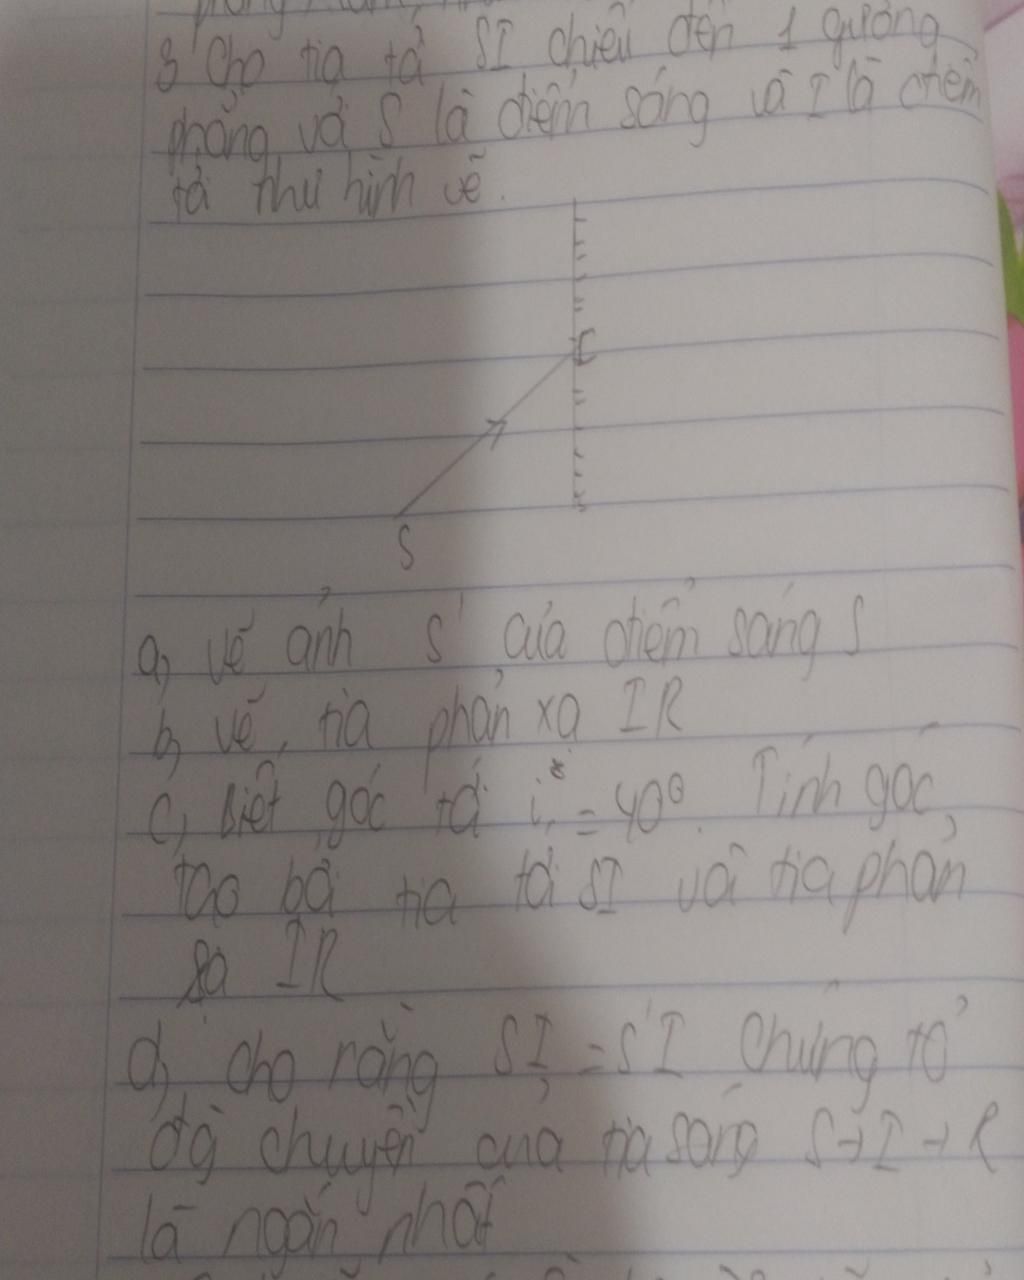 3 Cho tia tả SI chiếu đến 1 gương
phẳng và S là điểm sáng và I là điểm
tả như hình vẽ.
I
S
a, vẽ ảnh S' của điểm sáng S
b, vẽ tia phản xạ IR
c, biết góc tớ i = 40°. Tính góc
tạo bởi tia tới SI và tia phản
xạ IR
d, cho rằng SI = S'I Chứng tỏ
đg chuyền của tia sáng S → I → R
là ngắn nhất